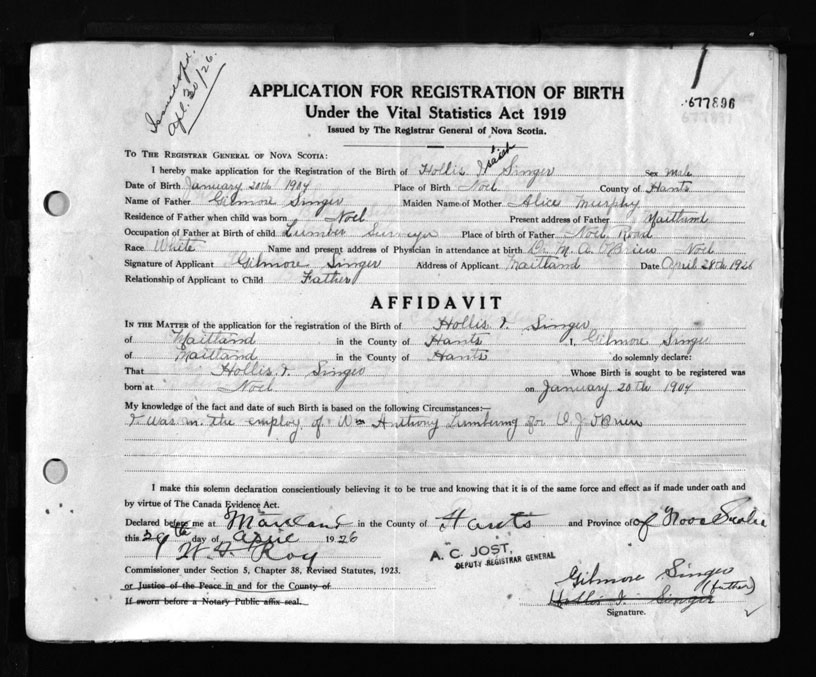 Apl. 30/26.
677896
APPLICATION FOR REGISTRATION OF BIRTH
Under the Vital Statistics Act 1919
Issued by The Registrar General of Nova Scotia.
TO THE REGISTRAR GENERAL OF NOVA SCOTIA:
I hereby make application for the Registration of the Birth of Hollis Isaiah Singer Sex Male
Date of Birth January 20th 1904 Place of Birth Noel County of Hants
Name of Father Gilmore Singer Maiden Name of Mother Alice Murphy
Residence of Father when child was born Noel Present address of Father Maitland
Occupation of Father at Birth of child Lumber Surveyer Place of birth of Father Noel Road
Race White Name and present address of Physician in attendance at birth Dr. M. A. O'Brien Noel
Signature of Applicant Gilmore Singer Address of Applicant Maitland Date April 28th 1926
Relationship of Applicant to Child Father
AFFIDAVIT
IN THE MATTER of the application for the registration of the Birth of Hollis I. Singer
of Maitland in the County of Hants I, Gilmore Singer
of Maitland in the County of Hants do solemnly declare:
That Hollis I. Singer Whose Birth is sought to be registered was
born at Noel on January 20th 1904
My knowledge of the fact and date of such Birth is based on the following Circumstances:—
I was in the employ of Wm Anthony Lumbering for O. J. O'Brien
I make this solemn declaration conscientiously believing it to be true and knowing that it is of the same force and effect as if made under oath and
by virtue of The Canada Evidence Act.
Declared before me at Maitland in the County of Hants and Province of of Nova Scotia
this 29th day of April 1926
W. F. Roy
A. C. JOST,
DEPUTY REGISTRAR GENERAL
Commissioner under Section 5, Chapter 38, Revised Statutes, 1923.
or Justice of the Peace in and for the County of
If sworn before a Notary Public affix seal.
Gilmore Singer
(father)
Hollis I. Singer
Signature.